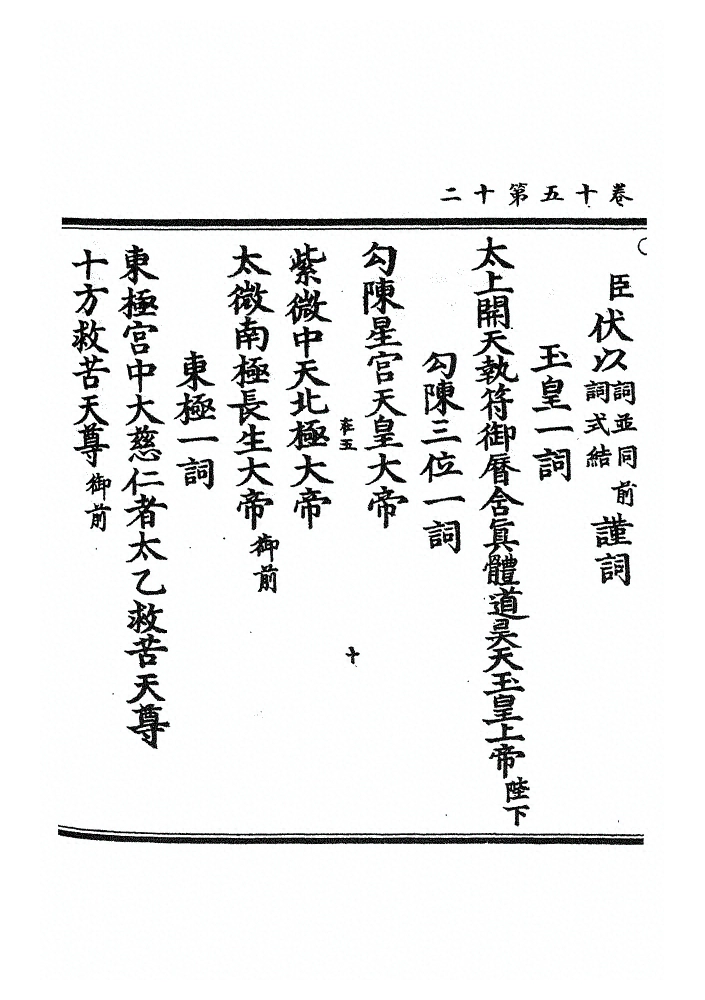 卷十五第十二
臣伏以詞並同前詞式結謹詞
玉皇一詞
太上開天執符御曆含真體道昊天玉皇上帝陛下
勾陳三位一詞
勾陳星宮天皇大帝
十
紫微中天北極大帝
太微南極長生大帝御前
東極一詞
東極宮中大慈仁者太乙救苦天尊
十方救苦天尊御前